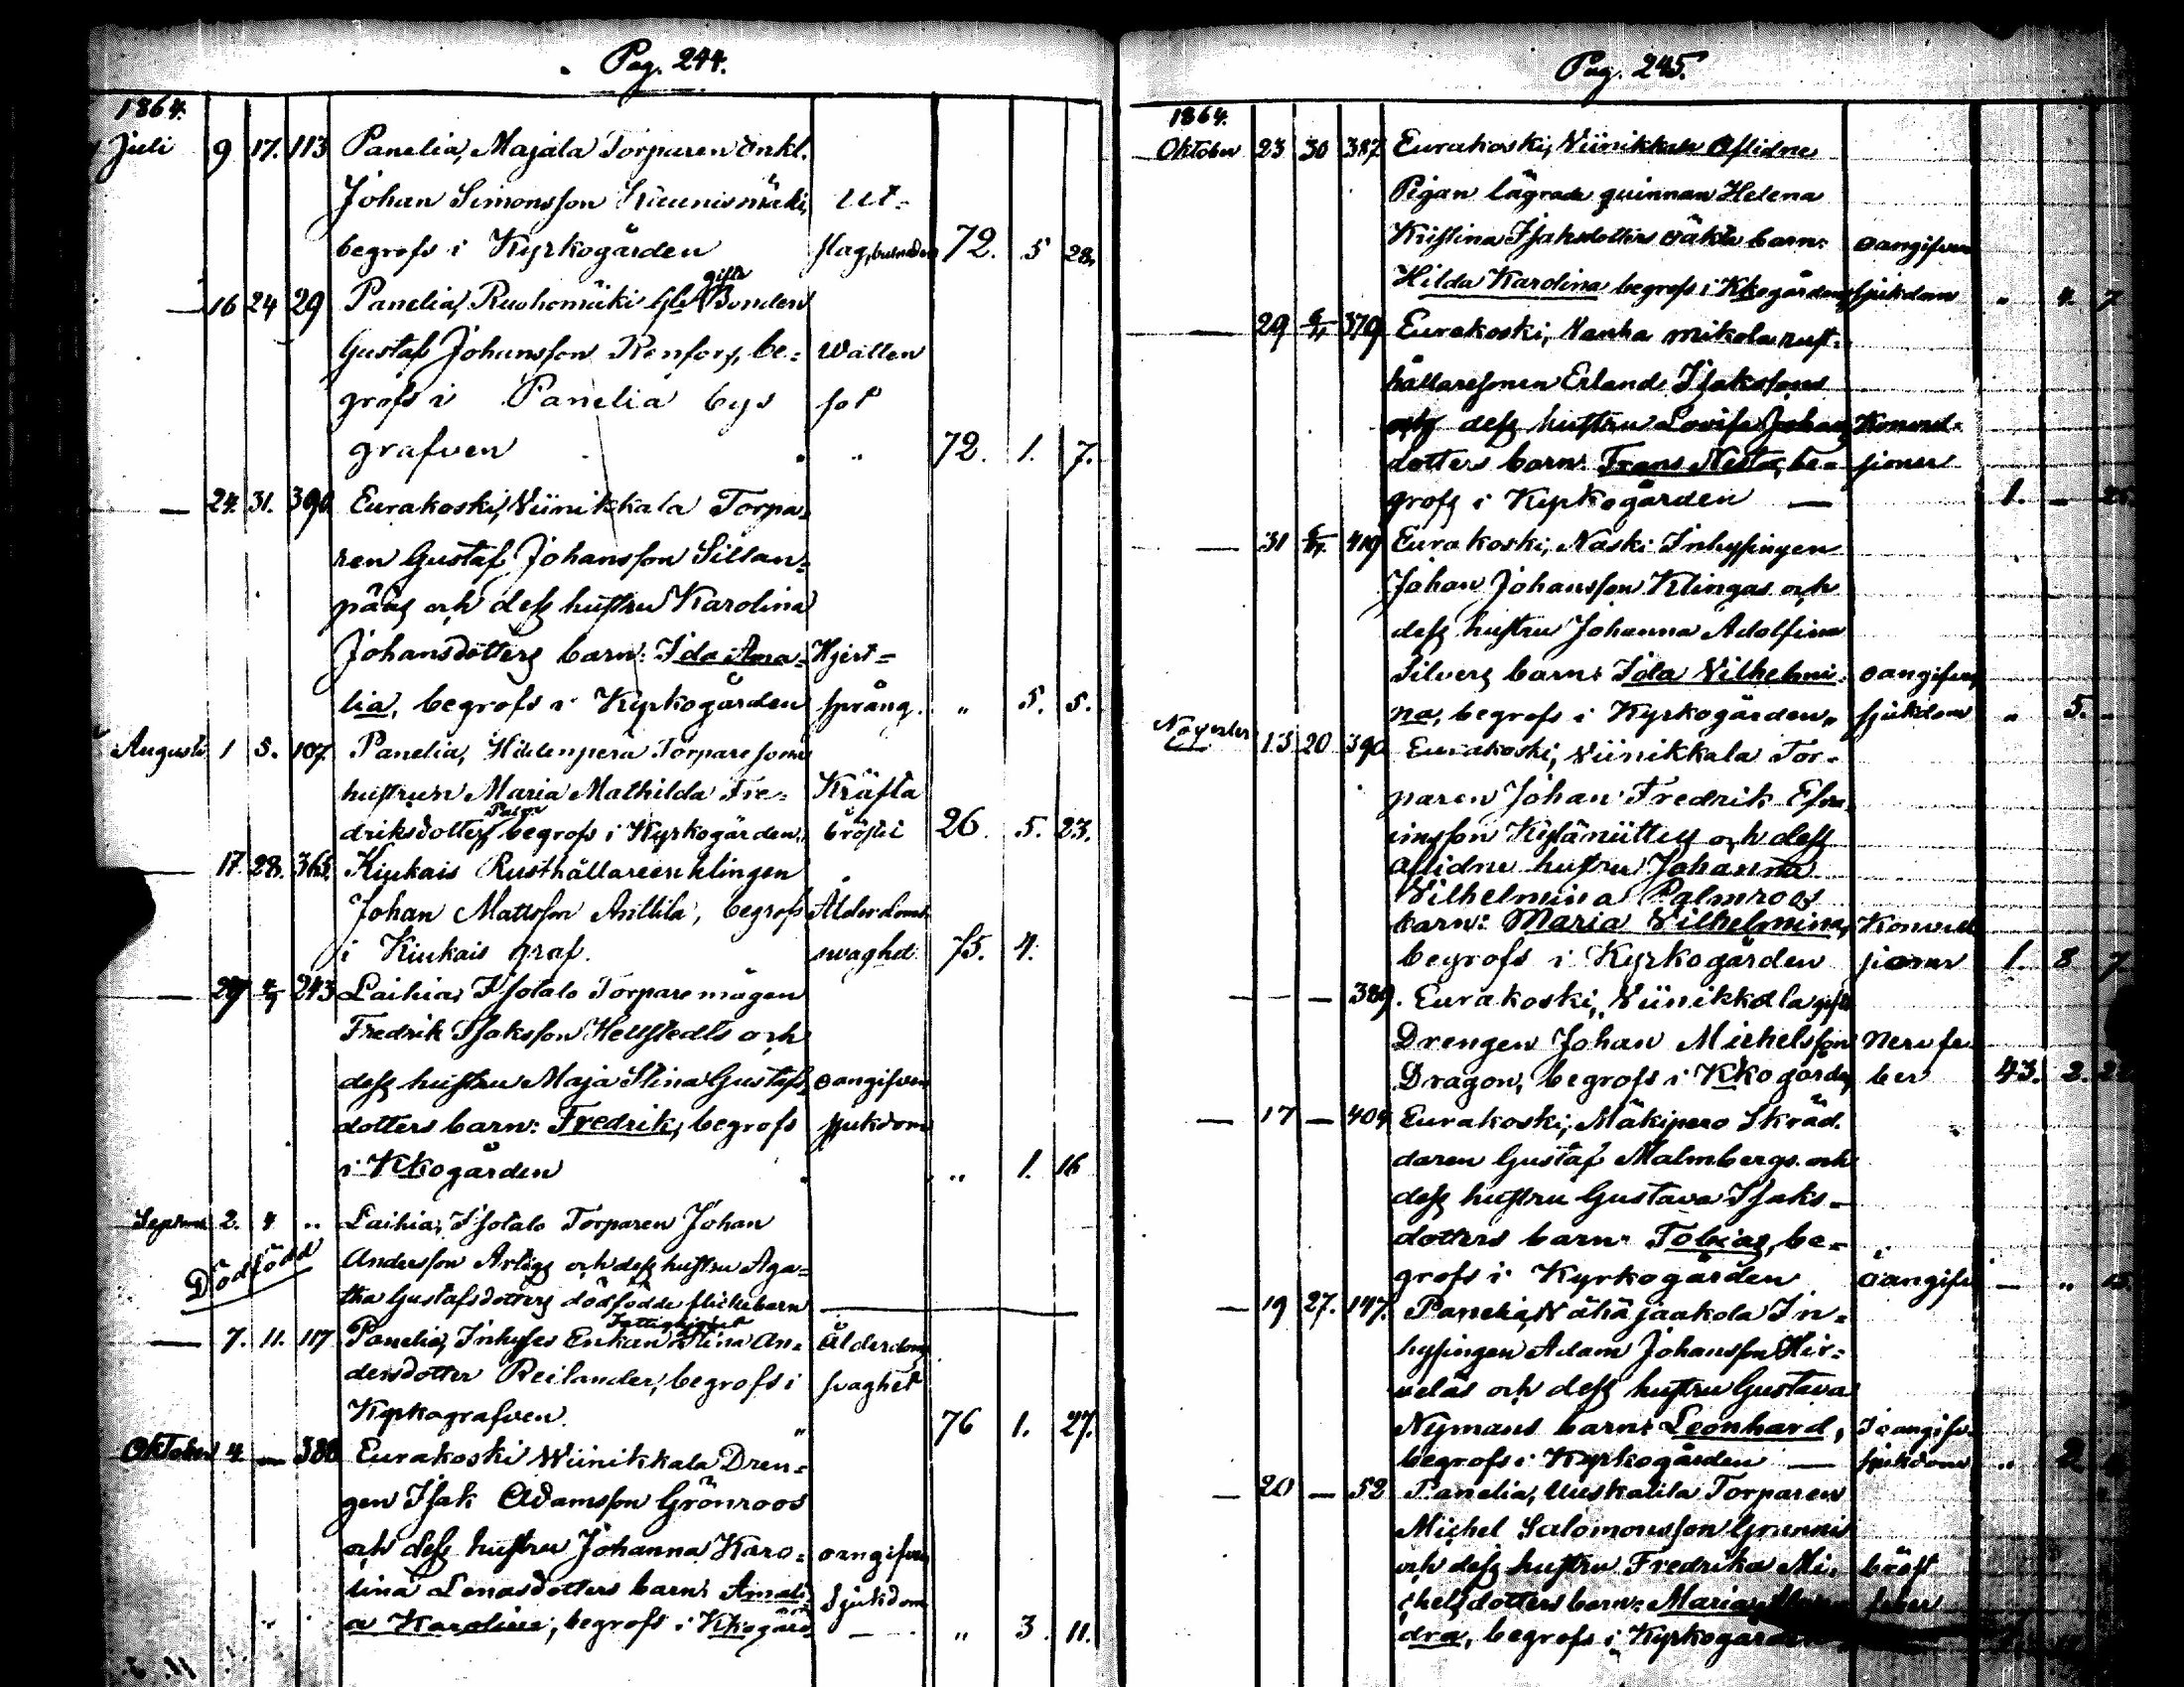 Pag. 244.
1864.
Juli 9 17. 113 Panelia, Majala Torparen Enkl.
Johan Simonsson Kiwenismäki, Ut-
begrofs i Kyrkogården slag, bulnaden 72. 5 28.
— 16 24 29 Panelia, Ruohomäki gifte Bonden
Gustaf Johansson Renfors, be- Watten
grofs i Panelia bys sot
grafven " 72. 1. 7.
— 24. 31. 390 Eurakoski, Wiinikkala Torpa-
ren Gustaf Johansson Sillan-
pääs och dess hustru Karolina
Johansdotters barn: Ida Ama- Hjert-
lia, begrofs i Kyrkogården språng. " 5. 5.
Augusti 1 5. 107. Panelia, Hiidenperä Torparesons
hustrun Maria Mathilda Fre- Kräfta
driksdotter begrofs i Kyrkogården, i bröstet 26. 5. 23.
— 17. 28. 365. Kiukais Rusthållareenklingen
Johan Mattsson Anttila, begrofs Ålderdoms
i Kiukais graf. swaghet 75. 4.
— 29 4/9 243 Laihia, Isotalo Torparemågen
Fredrik Isaksson Hellstedts och
dess hustru Maja Stina Gustafs- oangifven
dotters barn: Fredrik, begrofs sjukdom
i Kkogården " 1. 16
Septemb 2. 4 " Laihia, Isotalo Torparen Johan
Dödfödd Andersson Artigs och dess hustru Aga-
tha Gustafsdotters dödfödde flickebarn
Fattighjonet
— 7. 11. 117 Panelia, Inhyses Enkan Stina An- ålderdoms
dersdotter Reilander, begrofs i svaghet
Kyrkografven " 76 1. 27.
Oktober 4. — 388 Eurakoski Wiinikkala Dren-
gen Isak Adamsson Grönroos
och dess hustru Johanna Karo- oangifven
lina Lenasdotters barn: Amali- Sjukdom
a Karolina, begrofs i Kkogård. — " 3. 11.
Pag. 245.
1864.
Oktober 23 30 387. Eurakoski, Wiinikkala Aflidne
Pigan lägrade quinnan Helena
Kristina Isaksdotters oäkta barn: oangifven
Hilda Karolina begrofs i Kkogården sjukdom " 4. 7
— 29 6/11 379 Eurakoski, Nanha mikola rust-
hållaresonen Erland Isakssons
och dess hustru Lovisa Johans- Konvul-
dotters barn: Frans Nestor, be- sioner
grofs i Kyrkogården — 1. — 25.
— 31 6/11 419 Eurakoski, Naski Inhysingen
Johan Johansson Klingas och
dess hustru Johanna Adolfina
Silvers barn: Ida Wilhelmi- oangifven
na, begrofs i Kyrkogården, sjukdom " 5. "
November 13 20 390 Eurakoski, Wiinikkala Tor-
paren Johan Fredrik Efra-
imsson och dess
aflidne hustru Johanna
Wilhelmina Palmroos
barn: Maria Wilhelmina, Konvul
begrofs i Kyrkogården sioner 1. 8 7
— — — 389. Eurakoski, Wiinikkala gifte
Drengen Johan Michelsson Nervfe
Dragon, begrofs i Kkogården ber 43. 2. 22
— 17 — 404 Eurakoski, Mäkipero Skräd.
daren Gustaf Malmbergs och
dess hustru Gustava Isaks-
dotters barn: Tobias, be-
grofs i Kyrkogården oangifv — " 15.
— 19 27. 147. Panelia, Wähä jaakola In-
hysingen Adam Johansson Hir-
veläs och dess hustru Gustava
Nymans barn: Leonhard, oangifv.
begrofs i Kyrkogården — sjukdom " 2
— 20 — 52 Panelia, Uuskalila Torparen
Michel Salomonsson Grannis
och dess hustru Fredrika Mi- bröst
chelsdotters barn: Maria feber
dra, begrofs i Kyrkogården